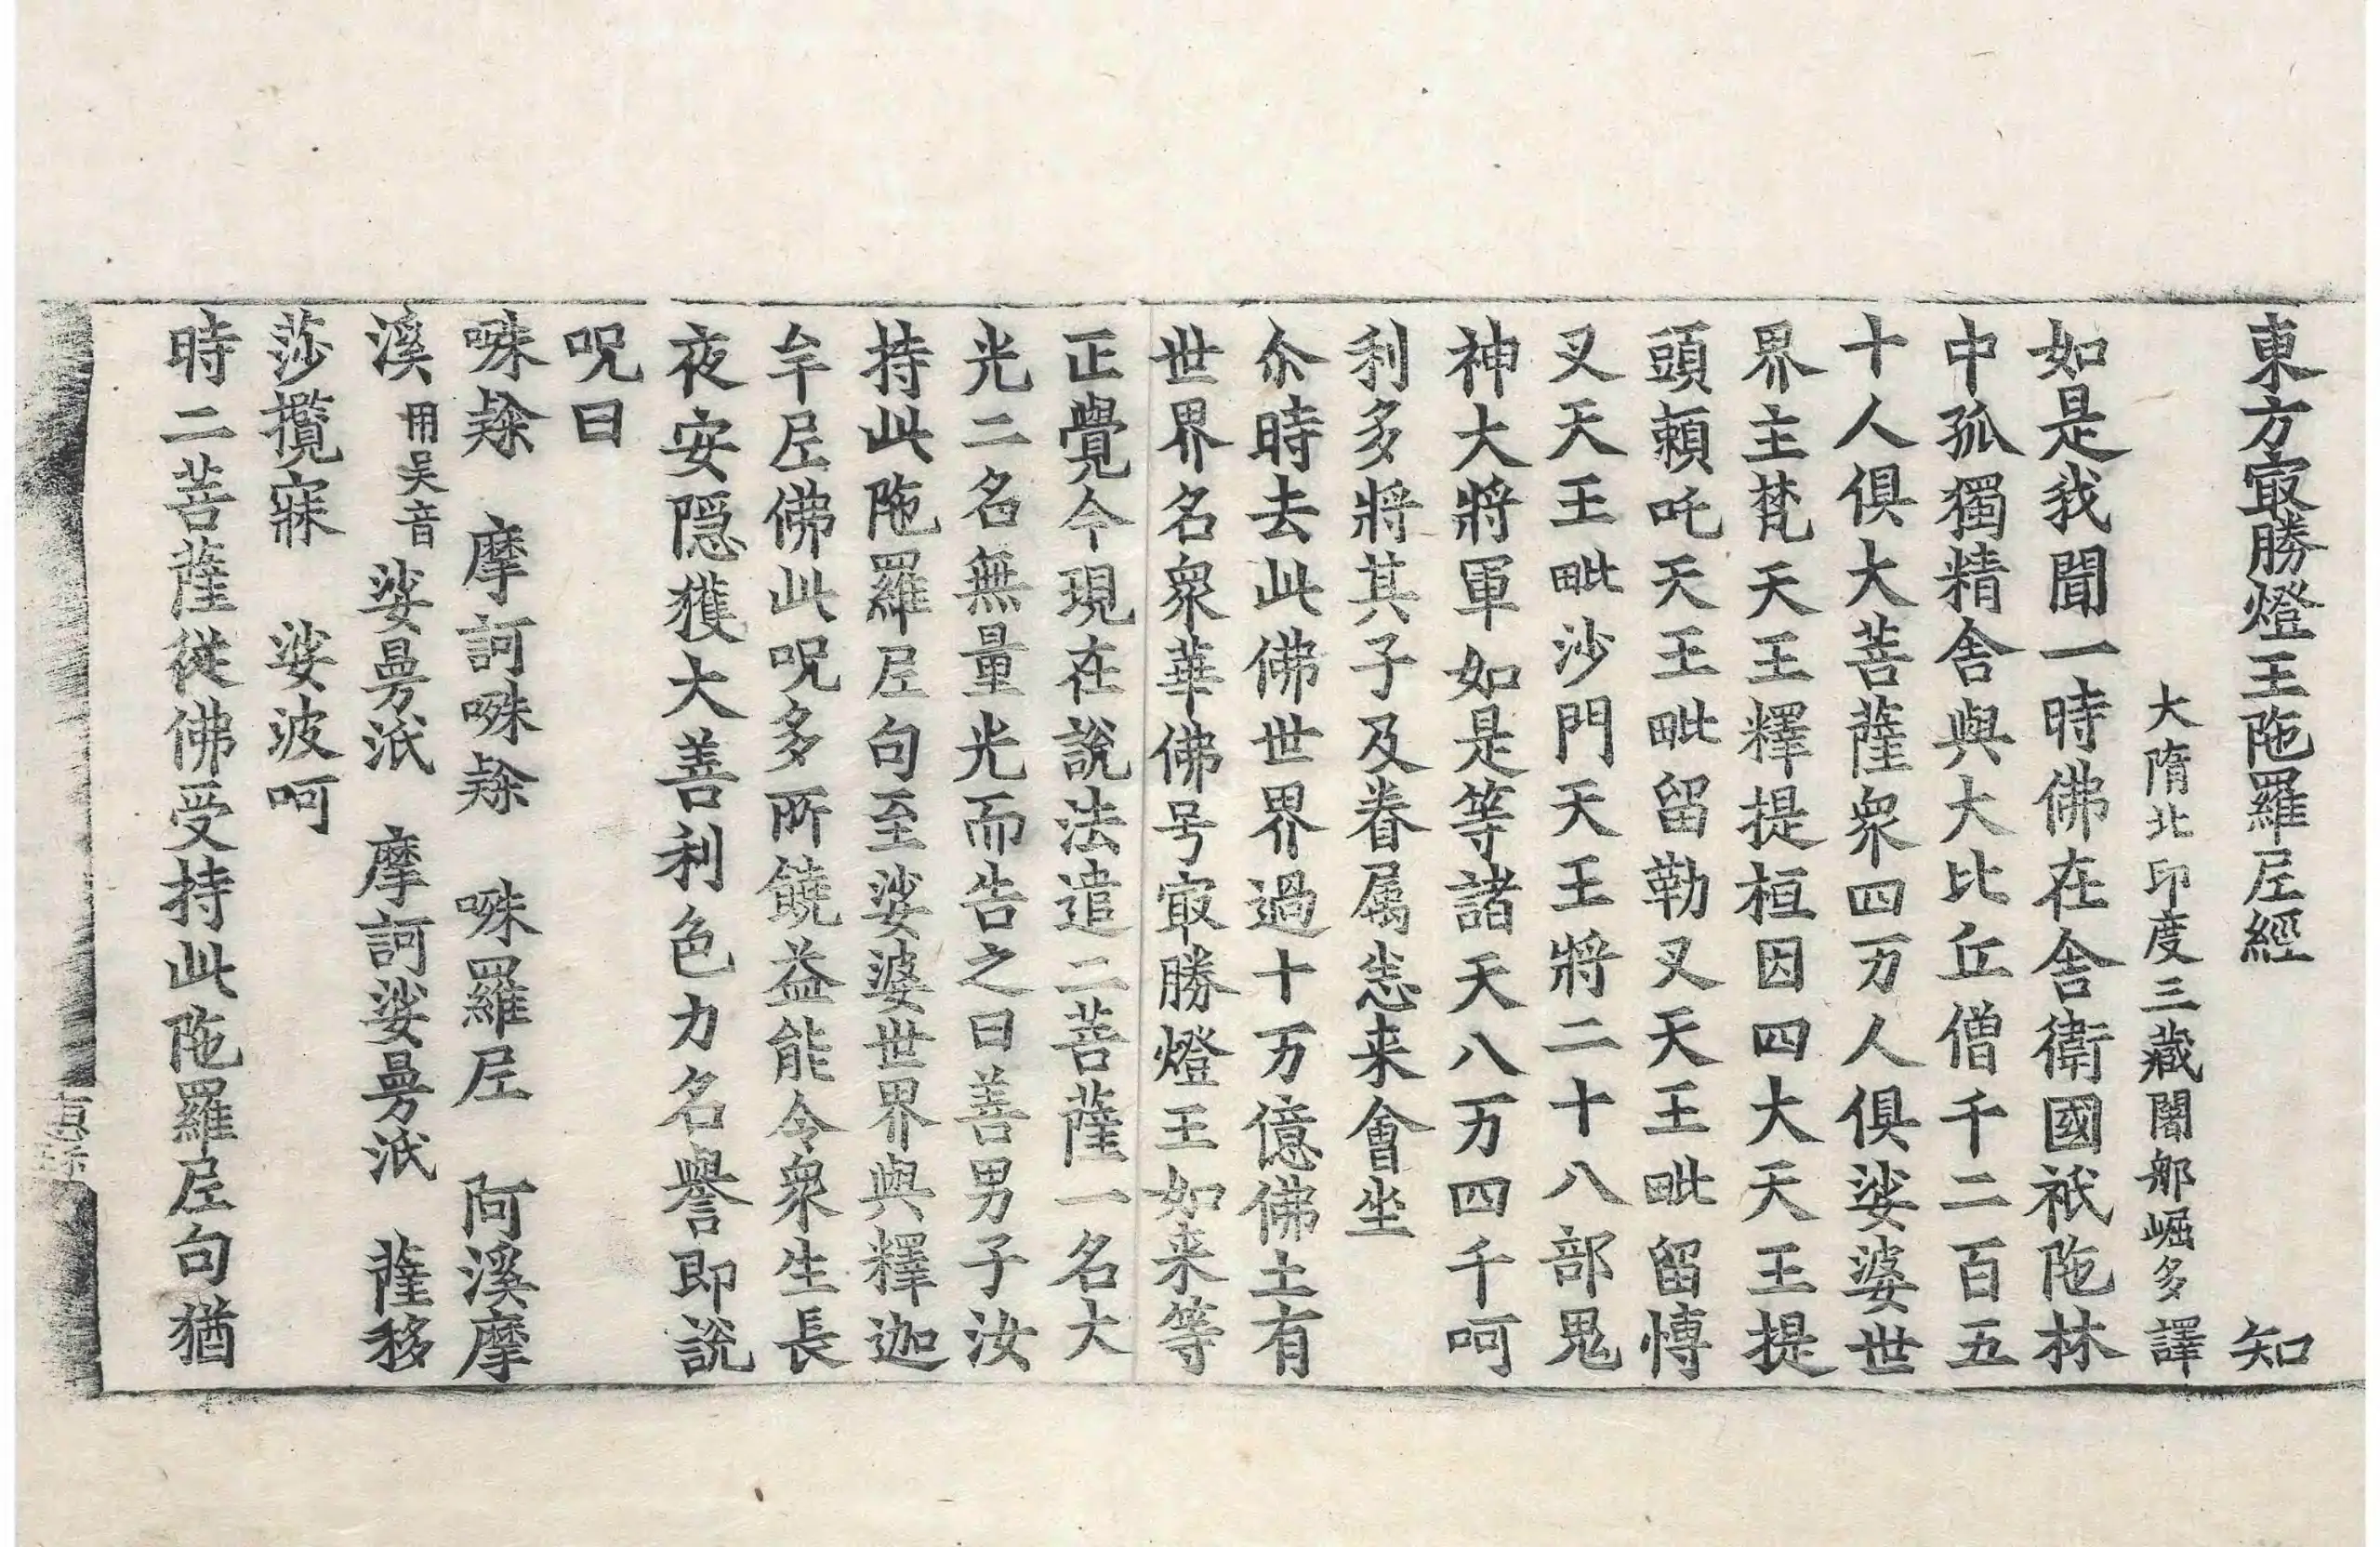 東方㝡勝燈王陁羅尼經　知
大隋北印度三藏闍那崛多譯
如是我聞一時佛在舍衛國祇陁林
中孤獨精舍與大比丘僧千二百五
十人俱大菩薩衆四万人俱娑婆世
界主梵天王釋提桓因四大天王提
頭頼吒天王毗留勒叉天王毗留博
叉天王毗沙門天王將二十八部鬼
神大將軍如是等諸天八万四千呵
利多將其子及眷属恙来會坐
尒時去此佛世界過十万億佛土有
世界名衆華佛号㝡勝燈王如来等
正覺今現在說法遣二菩薩一名大
光二名無量光而告之曰善男子汝
持此陁羅尼句至娑婆世界與釋迦
牟尼佛此呪多所饒益能令衆生長
夜安隠獲大善利色力名譽即說
呪曰
㖶㷇　摩訶㖶㷇　㖶羅尼　阿溪摩
溪用吴音　娑曼泜　摩訶娑曼泜　薩移
莎攬寐　娑波呵
時二菩薩從佛受持此陁羅尼句猶